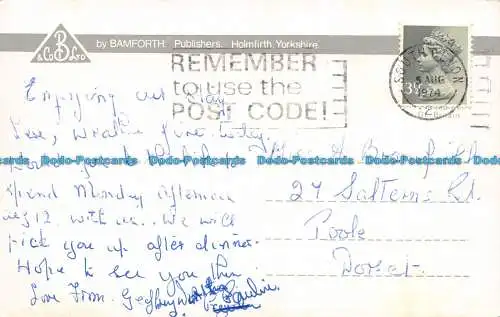 B
& Co LTD
by BAMFORTH Publishers. Holmfirth, Yorkshire.
REMEMBER
to use the
POST CODE!
SOUTH DEVON
5 AUG
1974
3½
Enjoying our Stay
here, weather fine today.
would you
spend Monday afternoon
Aug 12 with us. We will
pick you up after dinner.
Hope to see you then
Love From Geoffrey
Pauline.
Miss A
27 Salterns Rd.
Poole
Dorset.
Dodo-Postcards Dodo-Postcards Dodo-Postcards Dodo-Postcards Dodo-Postcards